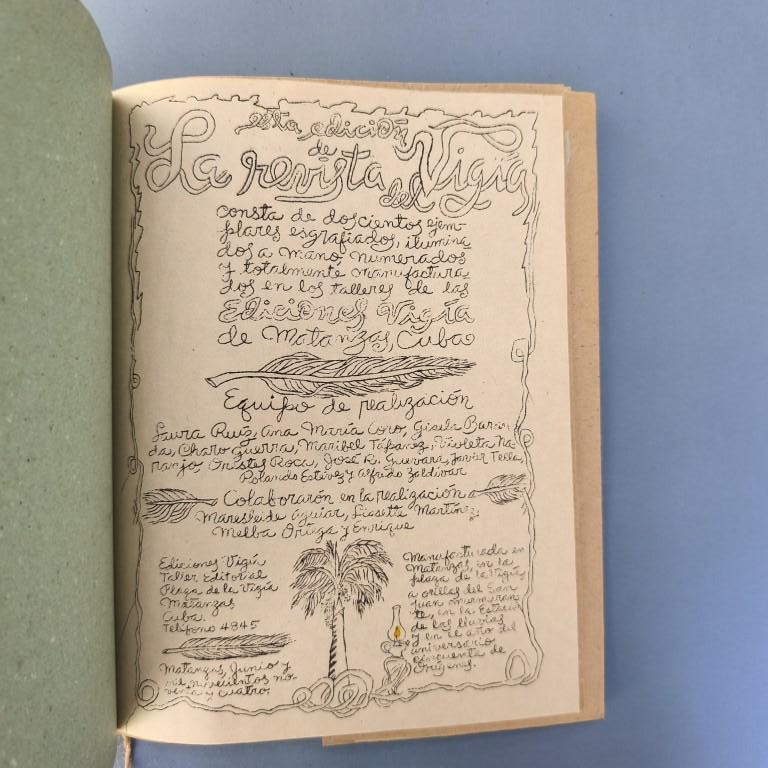 esta edición
de
La revista del Vigía
consta de doscientos ejem-
plares esgrafiados, ilumina-
dos a mano, numerados
y totalmente manufactura-
dos en los talleres de las
Ediciones Vigía
de Matanzas, Cuba
Equipo de realización
Laura Ruiz, Ana María Coro, Gisela Baran-
da, Charo Guerra, Maribel Tápanez, Violeta Na-
ranjo, Orestes Roca, José R. Guevara, Javier Tella,
Rolando Estévez y Alfredo Zaldívar
Colaboraron en la realización
Maresleide Aguiar, Lissette Martínez,
Melba Ortega y Enrique
Ediciones Vigía
Taller Editorial
Plaza de la Vigía
Matanzas
Cuba
Teléfono 4845
Matanzas, Junio y
mil novecientos no-
venta y cuatro.
Manufacturada en
Matanzas, en la
plaza de la Vigía
a orillas del San
Juan murmuran-
te, en la Estación
de las lluvias
y en el año del
aniversario
cincuenta de
Orígenes.